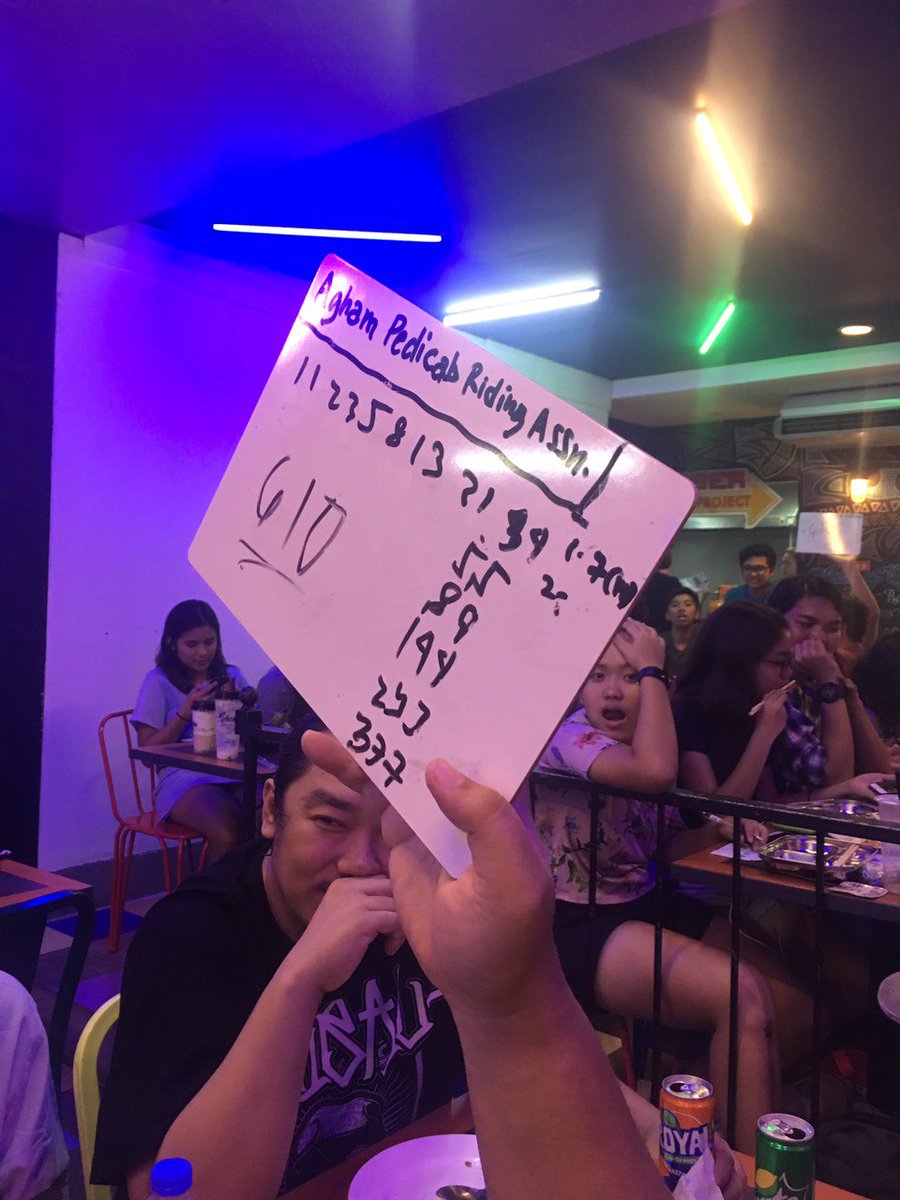 Agham Pedicab Riding Assn.
1 1 2 3 5 8 13 21 34
55
89
144
233
377
610
PROJECT